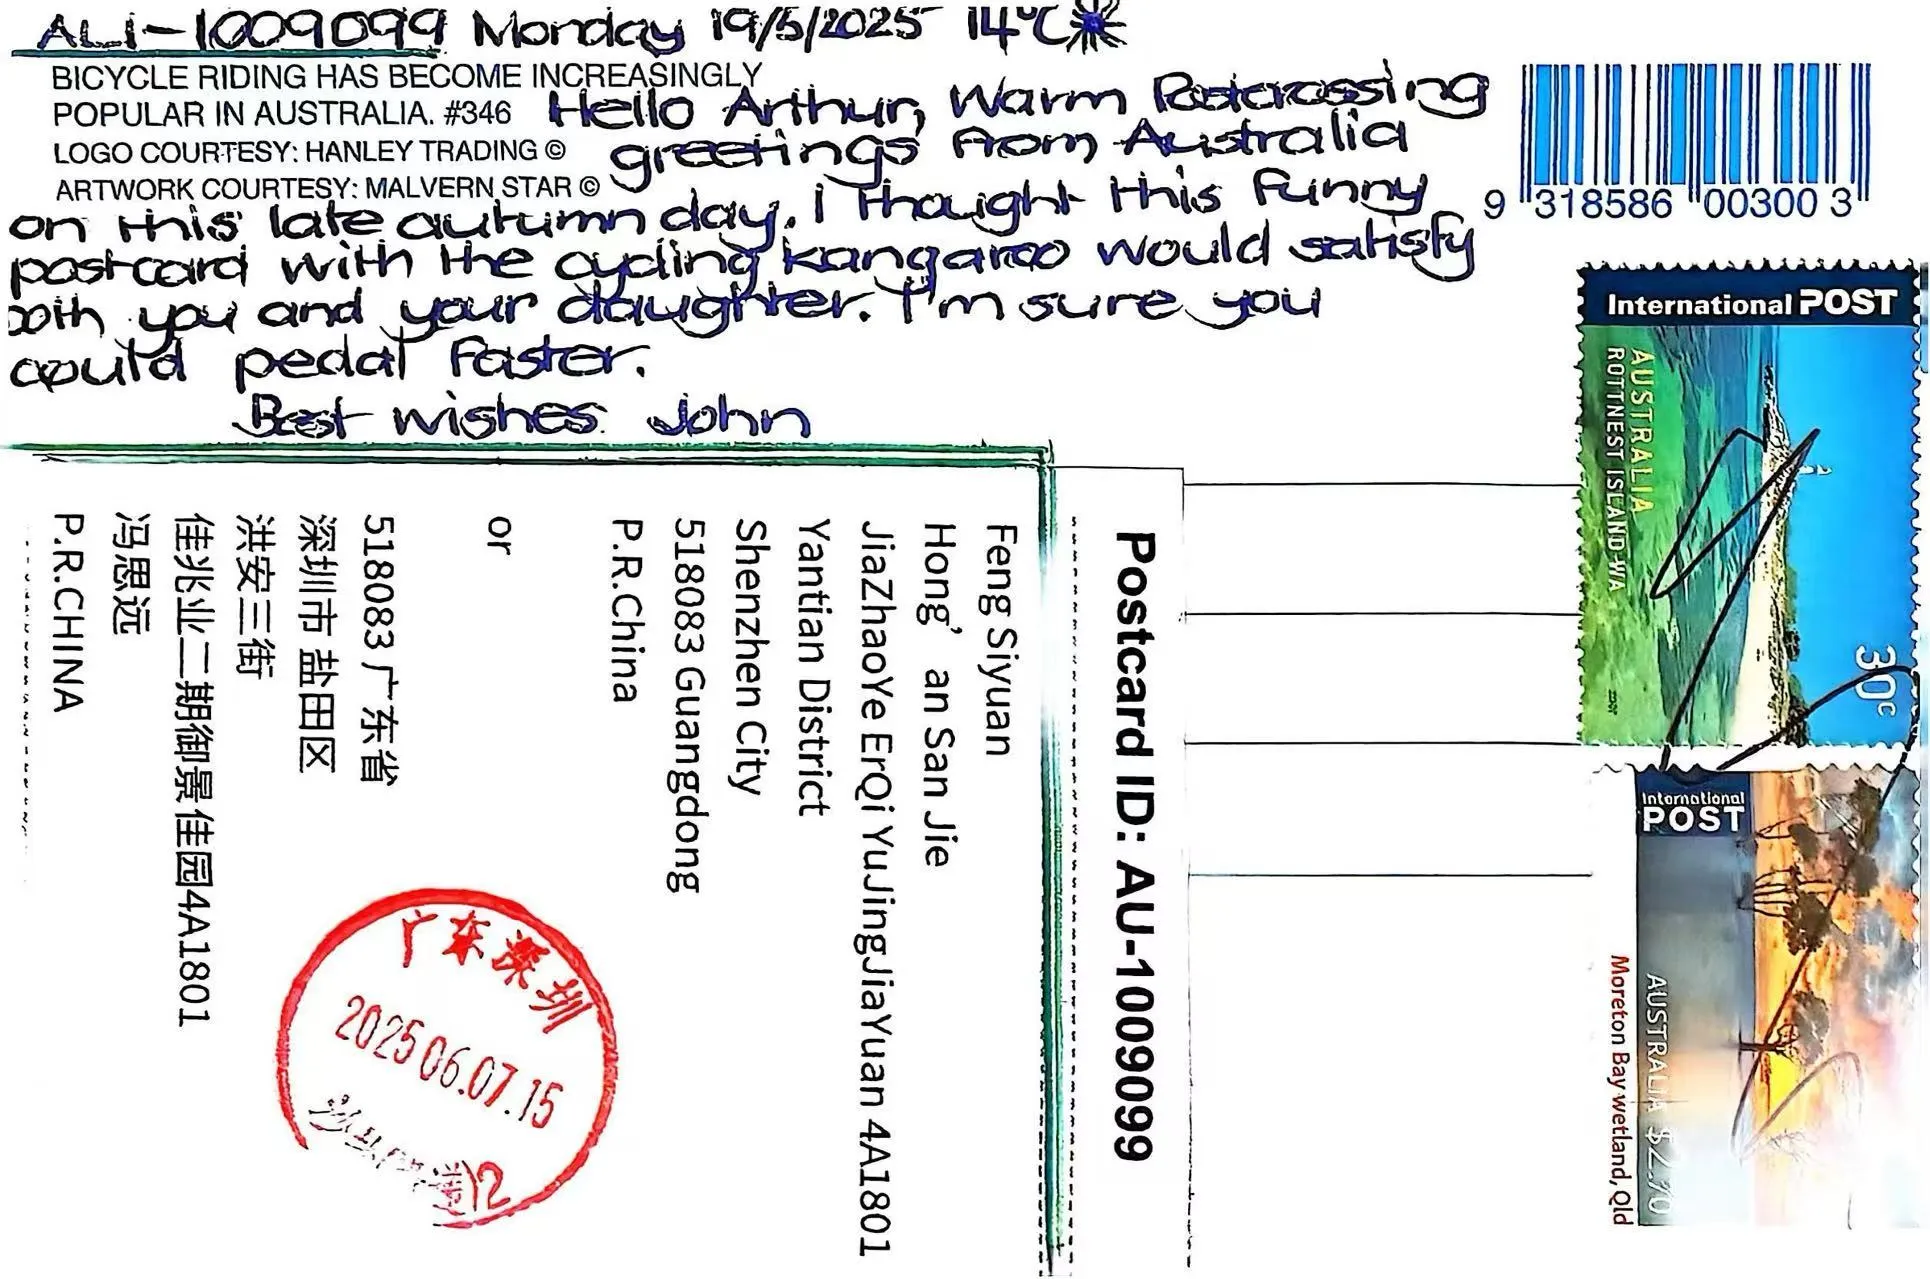 AU-1009099 Monday 19/5/2025 14°C
BICYCLE RIDING HAS BECOME INCREASINGLY
POPULAR IN AUSTRALIA. #346
LOGO COURTESY: HANLEY TRADING ©
ARTWORK COURTESY: MALVERN STAR ©
Hello Arthur, Warm Postcrossing
greetings from Australia
on this late autumn day. I thought this funny
postcard with the cycling kangaroo would satisfy
both you and your daughter. I'm sure you
could pedal faster.
Best wishes John
9 318586 003003
International POST
AUSTRALIA
ROTTNEST ISLAND WA
30c
International
POST
AUSTRALIA $2.70
Moreton Bay wetland, Qld
Postcard ID: AU-1009099
Feng Siyuan
Hong’an San Jie
JiaZhaoYe ErQi YuJingJiaYuan 4A1801
Yantian District
Shenzhen City
518083 Guangdong
P.R.China
or
518083 广东省
深圳市 盐田区
洪安三街
佳兆业二期御景佳园4A1801
冯思远
P.R.CHINA
广东深圳
2025 06.07.15
12